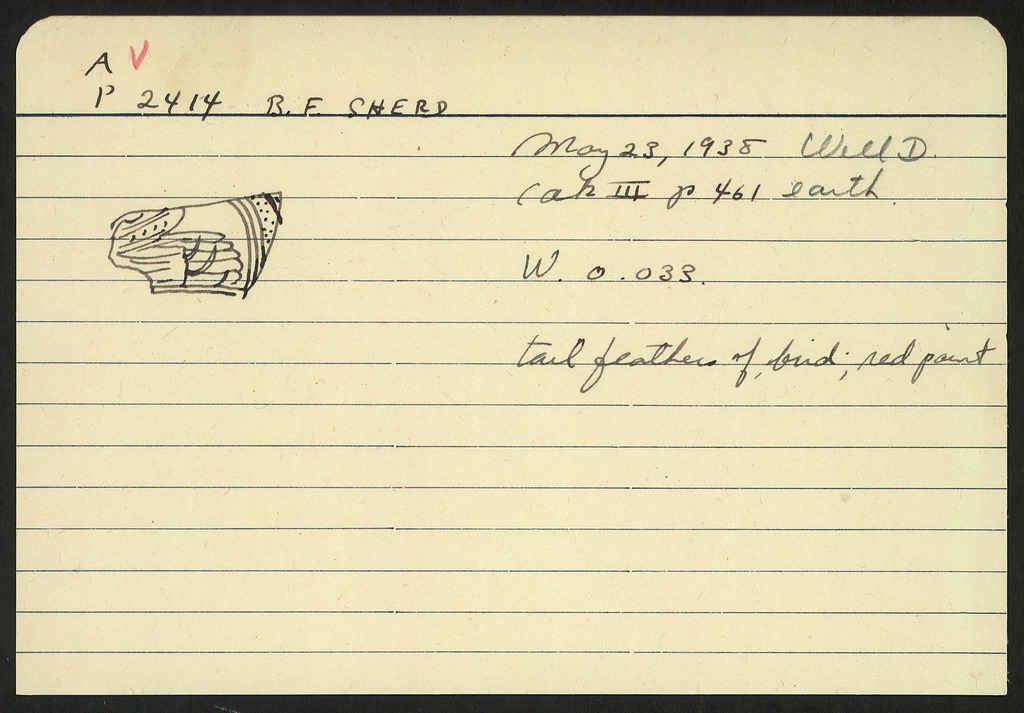 A V
P 2414 B.F. SHERD
May 23, 1938 Well D.
Cak III p 461 earth
W. 0.033.
tail feathers of bird; red paint